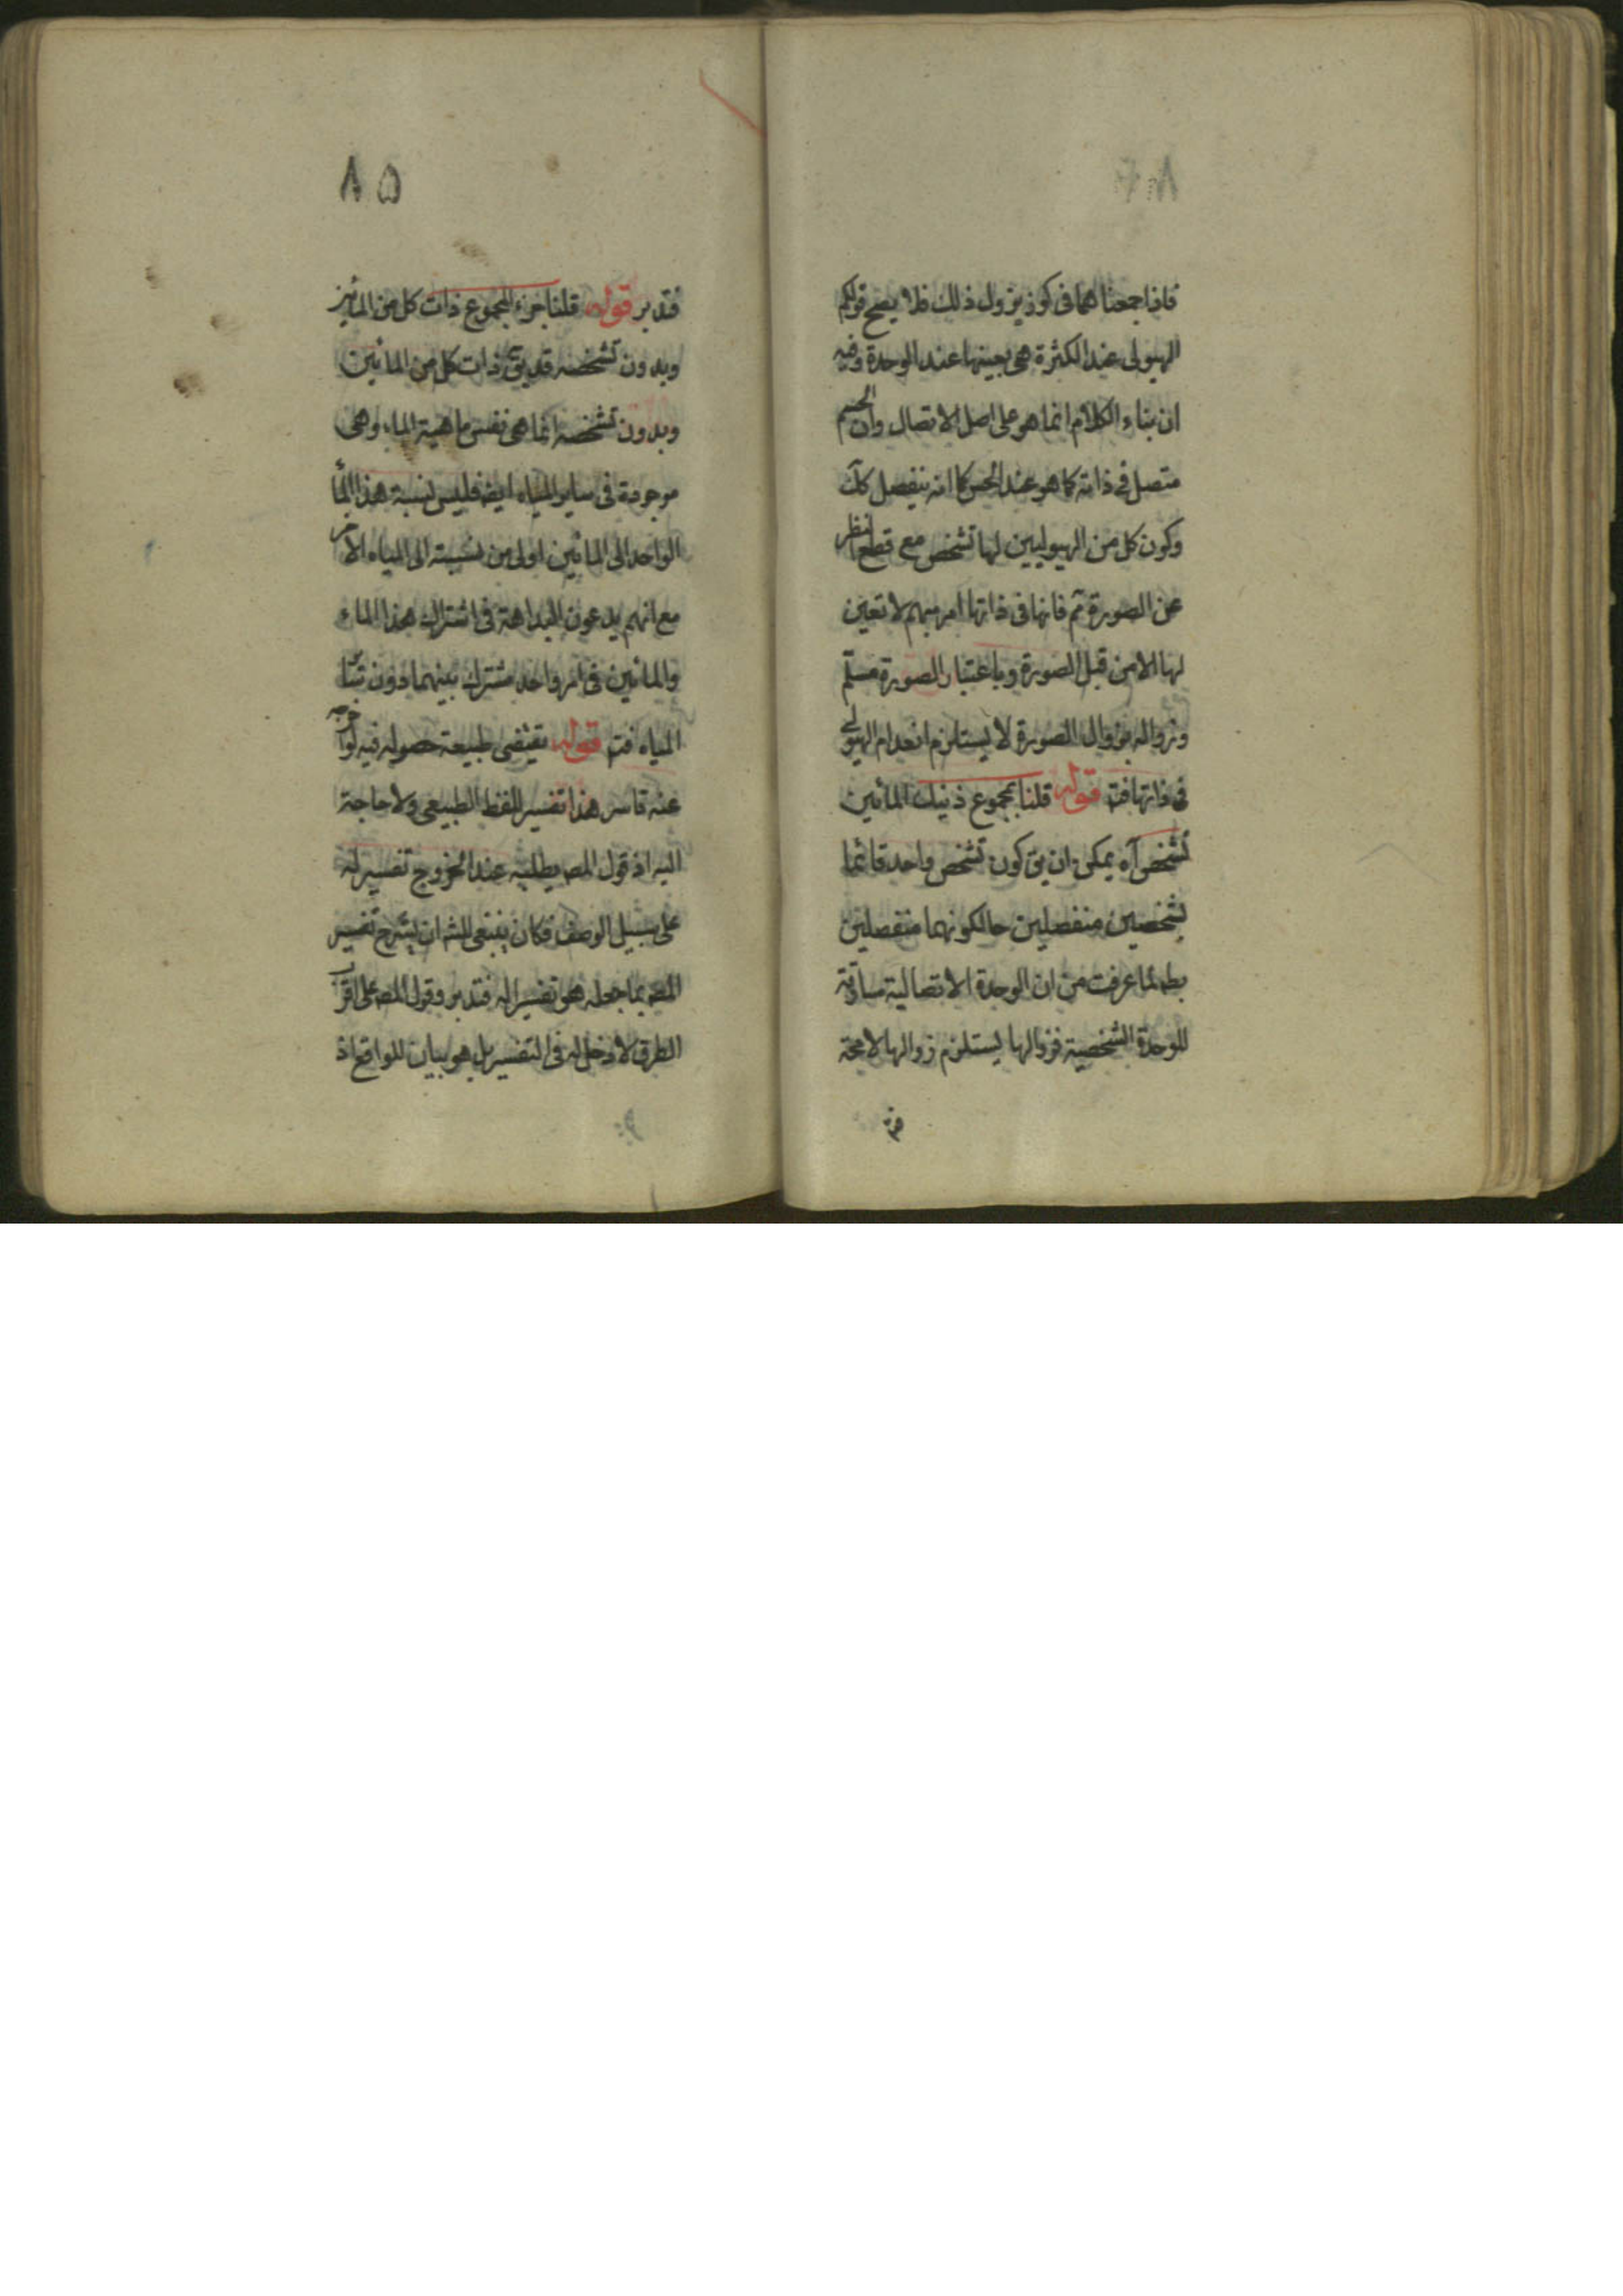 فاذا جمعناهما فى كوز يزول ذلك فلا يصح قولكم
الهيولى عند الكثرة هى بعينها عند الوحدة وفيه
ان بناء الكلام انما هو على اصل الاتصال وان الجسم
متصل فى ذاته كما هو عند الحس كما انه ينفصل كك
وكون كل من الهيوليين لها تشخص مع قطع النظر
عن الصورة ثم فانها فى ذاتها امر مبهم لا تعين
لها الا من قبل الصورة وباعتبار الصورة مسلم
وزواله بزوال الصورة لا يستلزم انعدام الهيولى
فى ذاتها فت قوله قلنا مجموع ذنيك المائين
تشخص آه يمكن ان يق كون تشخص واحد قائما
بشخصين منفصلين حالكونهما منفصلين
بط لما عرفت من ان الوحدة الاتصالية مساوقة
للوحدة الشخصية فزوالها يستلزم زوالها لامحة
٨٥
فتدبر قوله قلنا جزء المجموع ذات كل من المائين
وبدون تشخصه قد يق ذات كل من المائين
وبدون تشخصه انما هى نفس ماهية الماء وهى
موجودة فى ساير المياه ايض فليس نسبة هذا الماء
الواحد الى المائين اولى من نسبته الى المياه الاخر
مع انهم يدعون البداهة فى اشتراك هذا الماء
والمائين فى امر واحد مشترك بينهما دون سا
المياه فت قوله تقتضى طبيعة حصوله فيه لو اخرجه
عنه قاسر هذا تفسير للفظ الطبيعى ولا حاجة
اليه اذ قول المص يطلبه عند الخروج تفسير له
على سبيل الوصف فكان ينبغى للش ان يشرح تفسير
المص بما جعله هو تفسيرا له فتدبر وقول المص على اقرب
الطرق لا دخل له فى التفسير بل هو بيان للواقع اذ